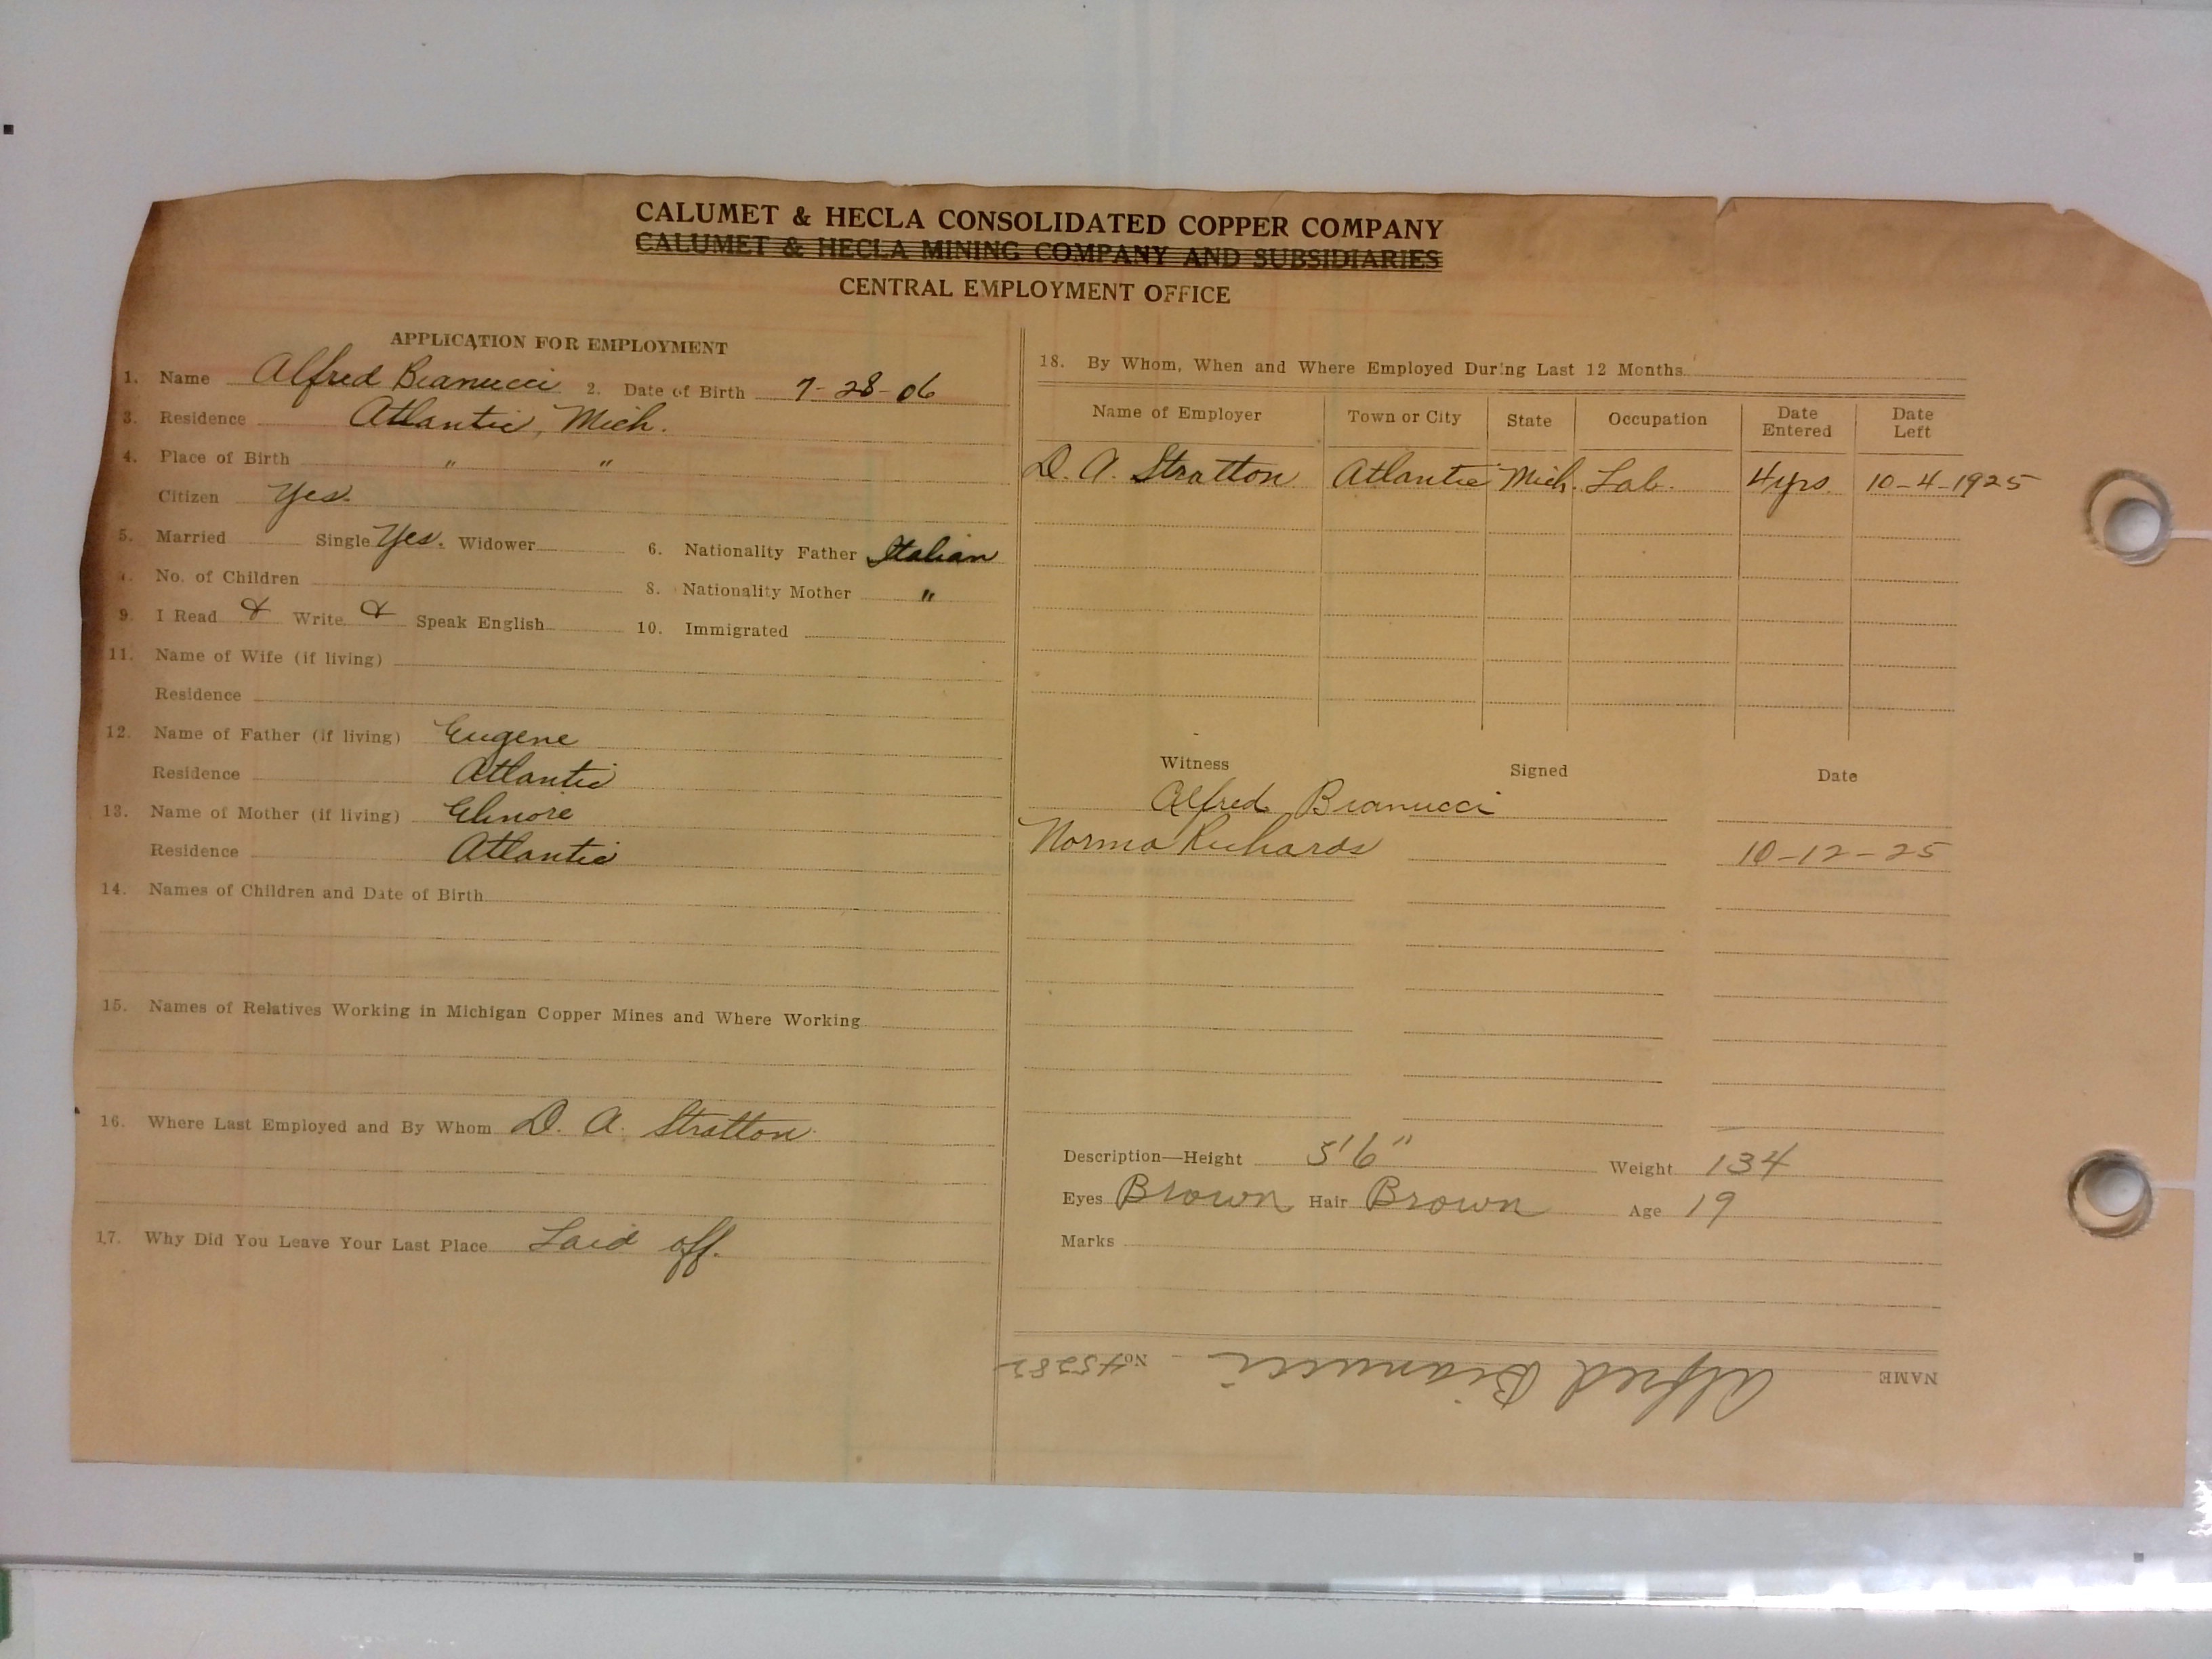 CALUMET & HECLA CONSOLIDATED COPPER COMPANY
CALUMET & HECLA MINING COMPANY AND SUBSIDIARIES
CENTRAL EMPLOYMENT OFFICE
APPLICATION FOR EMPLOYMENT
1. Name Alfred Bianucci 2. Date of Birth 7-28-06
3. Residence Atlantic, Mich.
4. Place of Birth " "
Citizen Yes.
5. Married Single Yes. Widower 6. Nationality Father Italian
No. of Children 8. Nationality Mother "
9. I Read & Write & Speak English 10. Immigrated
11. Name of Wife (if living)
Residence
12. Name of Father (if living) Eugene
Residence Atlantic
13. Name of Mother (if living) Elinore
Residence Atlantic
14. Names of Children and Date of Birth
15. Names of Relatives Working in Michigan Copper Mines and Where Working
16. Where Last Employed and By Whom D. A. Stratton
17. Why Did You Leave Your Last Place Laid off.
18. By Whom, When and Where Employed During Last 12 Months
Name of Employer Town or City State Occupation Date Entered Date Left
D. A. Stratton Atlantic Mich. Lab. 4 yrs. 10-4-1925
Witness Signed Date
Alfred Bianucci
Norma Richards 10-12-25
Description—Height 5'6" Weight 134
Eyes Brown Hair Brown Age 19
Marks
NAME Alfred Bianucci No. 45282